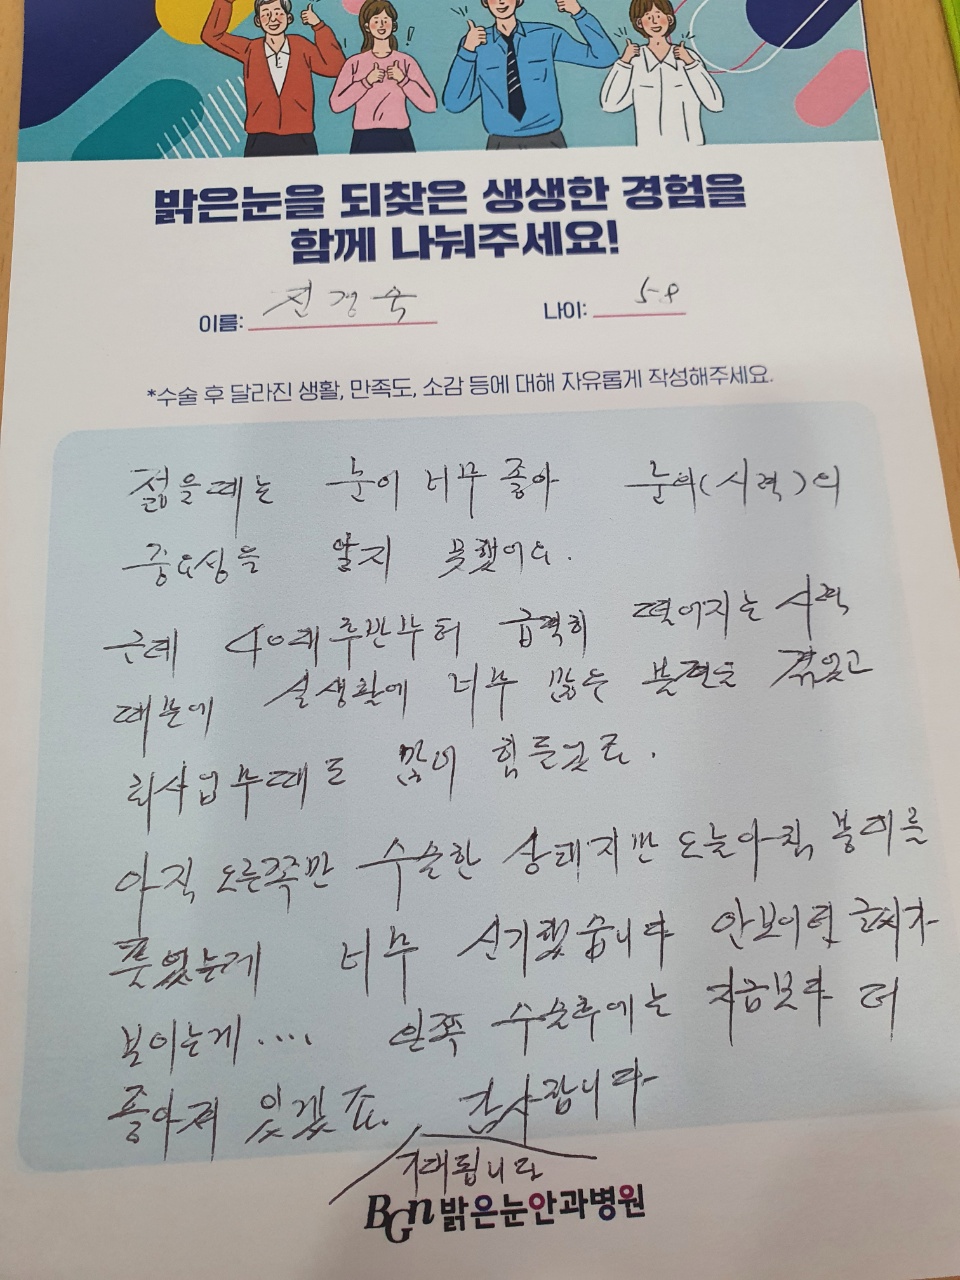 밝은눈을 되찾은 생생한 경험을
함께 나눠주세요!
이름: 전경숙 나이: 58
*수술 후 달라진 생활, 만족도, 소감 등에 대해 자유롭게 작성해주세요.
젊을때는 눈이 너무 좋아 눈의(시력)의
중요성을 알지 못했어요.
근래 40대후반부터 급격히 떨어지는 시력
때문에 실생활에 너무 많은 불편을 겪었고
회사업무때도 많이 힘들었죠.
아직 오른쪽만 수술한 상태지만 오늘아침 붕대를
풋었는데 너무 신기했습니다 안보이던 글씨가
보이는게.... 왼쪽 수술후에는 지금보다 더
좋아져 있겠죠. 감사합니다
기대됩니다
BGn 밝은눈안과병원